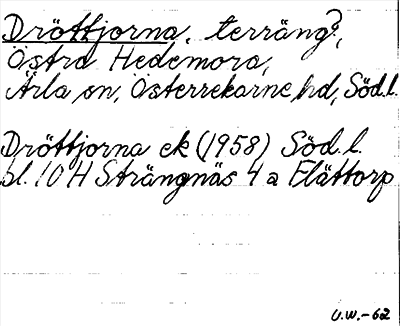 Dröttjorna, terräng?,
Östra Hedemora,
Ärla sn, Österrekarne hd, Söd.l.
Dröttjorna ek (1958) Söd.l.
bl. 10 H Strängnäs 4 a Elättorp
U.W.-62